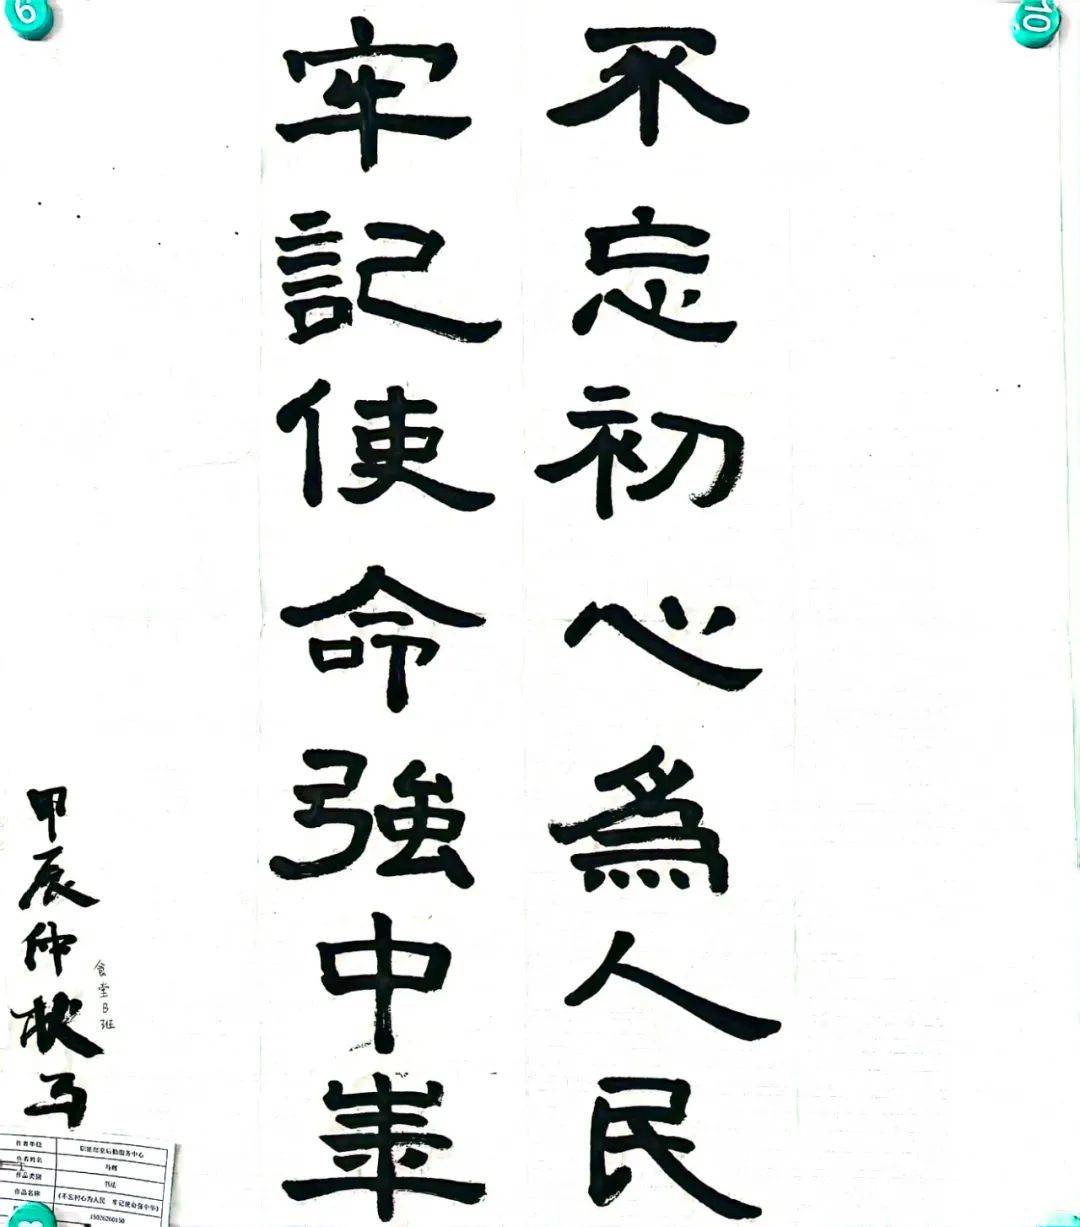 不忘初心為人民
牢記使命強中華
甲辰仲秋马
食堂B班
6
10
作者单位
后勤服务中心
作者姓名
马
作品类别 书法
作品名称 《不忘初心为人民 牢记使命强中华》
15026260150